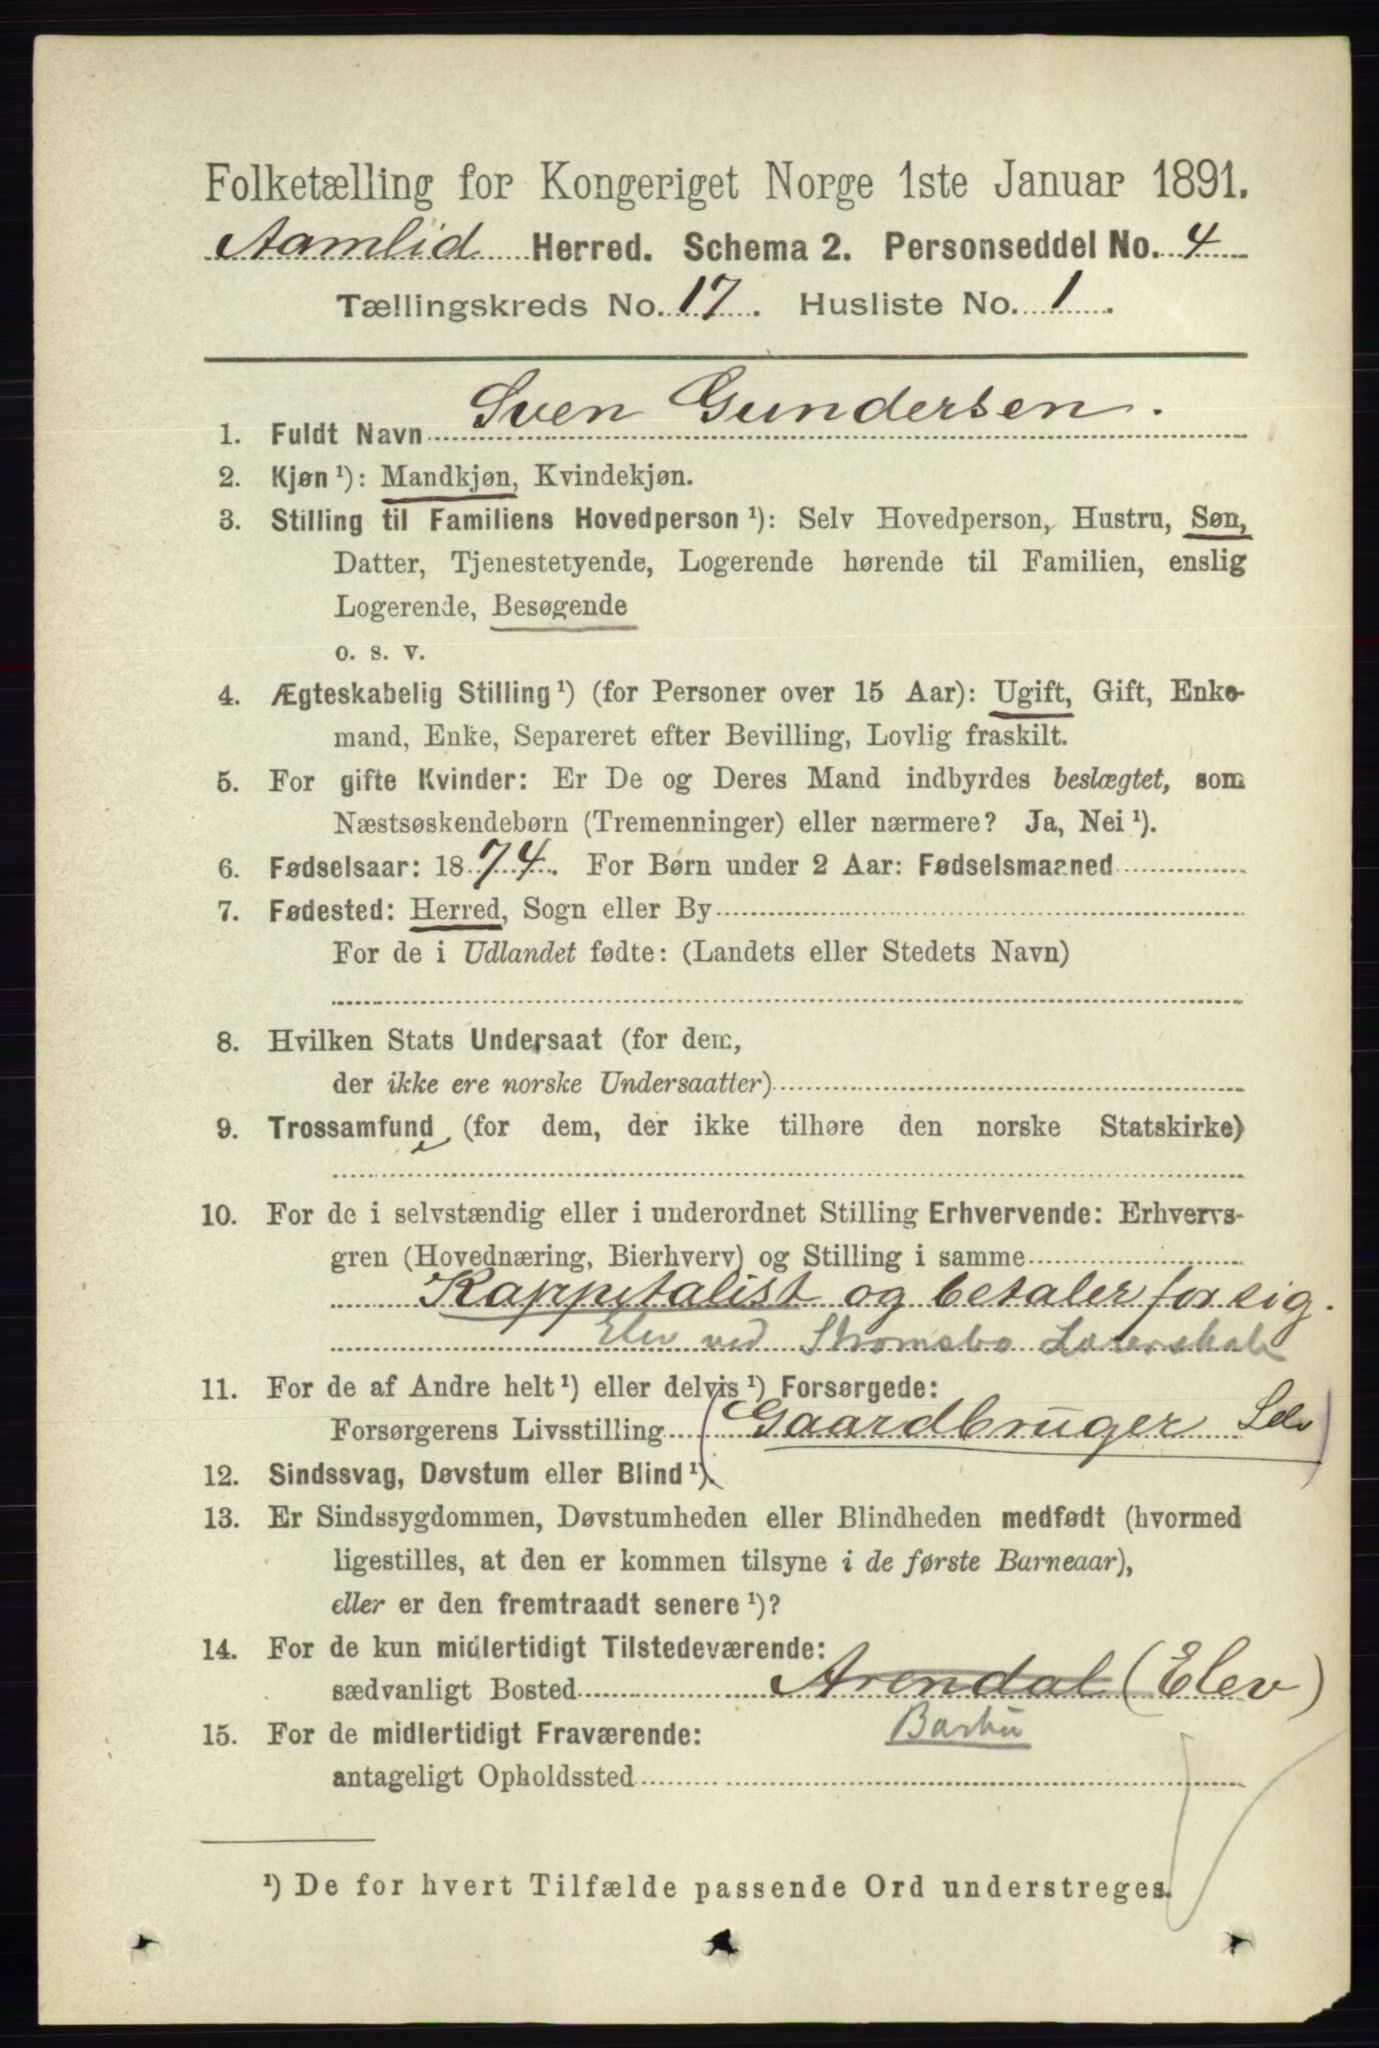 Folketælling for Kongeriget Norge 1ste Januar 1891.
Aamlid Herred. Schema 2. Personseddel No. 4
Tællingskreds No. 17. Husliste No. 1.
1. Fuldt Navn Sven Gundersen.
2. Kjøn¹): Mandkjøn, Kvindekjøn.
3. Stilling til Familiens Hovedperson¹): Selv Hovedperson, Hustru, Søn,
Datter, Tjenestetyende, Logerende hørende til Familien, enslig
Logerende, Besøgende
o. s. v.
4. Ægteskabelig Stilling¹) (for Personer over 15 Aar): Ugift, Gift, Enke-
mand, Enke, Separeret efter Bevilling, Lovlig fraskilt.
5. For gifte Kvinder: Er De og Deres Mand indbyrdes beslægtet, som
Næstsøskendebørn (Tremenninger) eller nærmere? Ja, Nei¹).
6. Fødselsaar: 1874. For Børn under 2 Aar: Fødselsmaaned
7. Fødested: Herred, Sogn eller By
For de i Udlandet fødte: (Landets eller Stedets Navn)
8. Hvilken Stats Undersaat (for dem,
der ikke ere norske Undersaatter)
9. Trossamfund (for dem, der ikke tilhøre den norske Statskirke)
10. For de i selvstændig eller i underordnet Stilling Erhvervende: Erhvervs-
gren (Hovednæring, Bierhverv) og Stilling i samme
Kappitalist og betaler for sig.
Elev ved Strømsbo Lærerskole
11. For de af Andre helt¹) eller delvis¹) Forsørgede:
Forsørgerens Livsstilling (Gaardbruger Selv)
12. Sindssvag, Døvstum eller Blind¹).
13. Er Sindssygdommen, Døvstumheden eller Blindheden medfødt (hvormed
ligestilles, at den er kommen tilsyne i de første Barneaar),
eller er den fremtraadt senere¹)?
14. For de kun midlertidigt Tilstedeværende:
sædvanligt Bosted Arendal (Elev)
Barbu
15. For de midlertidigt Fraværende:
antageligt Opholdssted
¹) De for hvert Tilfælde passende Ord understreges.